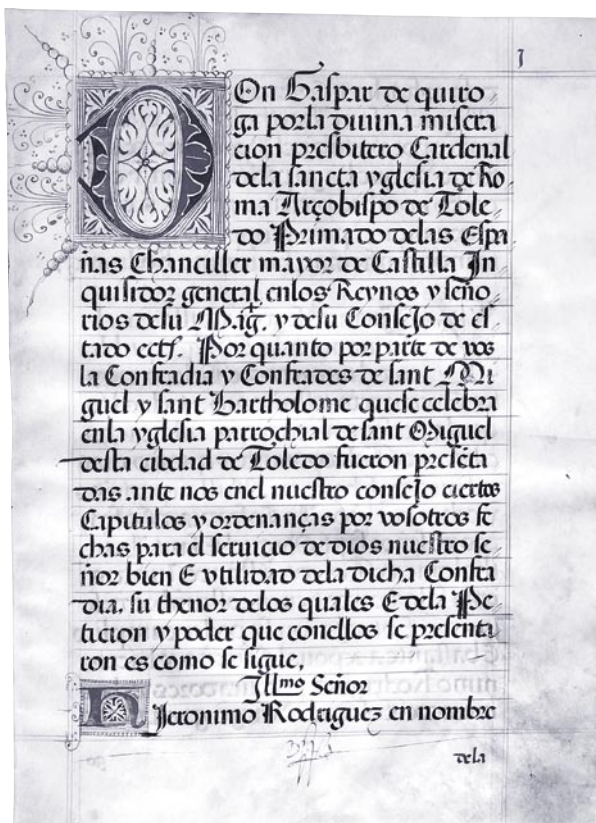 1
Don Gaspar de quiro
ga por la diuina misera
cion presbitero Cardenal
dela sancta yglesia de Ro
ma Arçobispo de Tole
do Primado delas Espa
ñas Chanciller mayor de Castilla In
quisidor general enlos Reynos y seño
rios de su Mag.t y desu Consejo de es
tado ectt. Por quanto por parte de vos
la Confradia y Confrades de sant Mi
guel y sant Bartholome quese celebra
enla yglesia parrochial de sant Miguel
desta cibdad de Toledo fueron presẽta
das ante nos enel nuestro consejo ciertos
Capitulos y ordenanças por vosotros fe
chas para el seruicio de dios nuestro se
ñor bien E vtilidad dela dicha Confra
dia, su thenor delos quales E dela Pe
ticion y poder que conellos se presenta
ron es como se sigue,
Ill.mo Señor
Hieronimo Rodriguez en nombre
dela